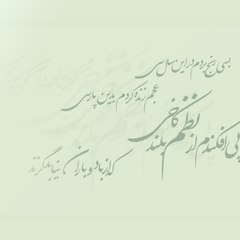 بسی رنج بردم در این سال سی
عجم زنده کردم بدین پارسی
پی افکندم از نظم کاخی بلند
که از باد و باران نیابد گزند